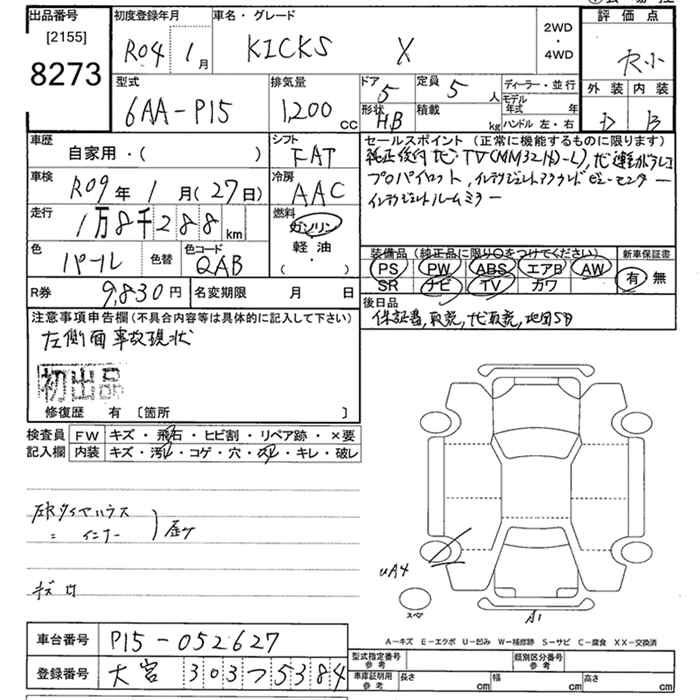 出品番号
[2155]
8273
初度登録年月
R04 1月
車名・グレード
KICKS X
2WD
・
4WD
評価点
R小
外装 内装
D B
型式
6AA-P15
排気量
1200cc
ドア
5
定員
5人
形状
HB
積載
kg
ディーラー・並行
モデル年式 年
ハンドル 左・右
車歴
自家用・( )
シフト
FAT
車検
R09年1月(27日)
冷房
AAC
走行
1万8千288km
燃料
ガソリン
軽油
・
( )
色
パール
色替
色コード
QAB
R券
9,830円
名変期限 月 日
セールスポイント(正常に機能するものに限ります)
純正後付ナビ・TV(MM32
プロパイロット,インテリジェントアラウンドビューモニター
インテリジェントルームミラー
装備品(純正品に限り○をつけてください)
PS PW ABS エアB AW
SR ナビ TV カワ
新車保証書
有 無
後日品
保証書,取説,ナビ取説,地図SD
注意事項申告欄(不具合内容等は具体的に記入して下さい)
左側面事故現状
初出品
修復歴 有 [箇所 ]
検査員
記入欄
FW キズ・飛石・ヒビ割・リペア跡・×要
内装 キズ・汚レ・コゲ・穴・スレ・キレ・破レ
左Rタイヤハウス
〃 インナー
キズ
uA4
スペア
A1
A-キズ E-エクボ U-凹み W-補修跡 S-サビ C-腐食 XX-交換済
車台番号 P15-052627
登録番号 大宮 303つ5384
型式指定番号
参考
類別区分番号
参考
車庫証明用
参考
長さ cm 幅 cm 高さ cm